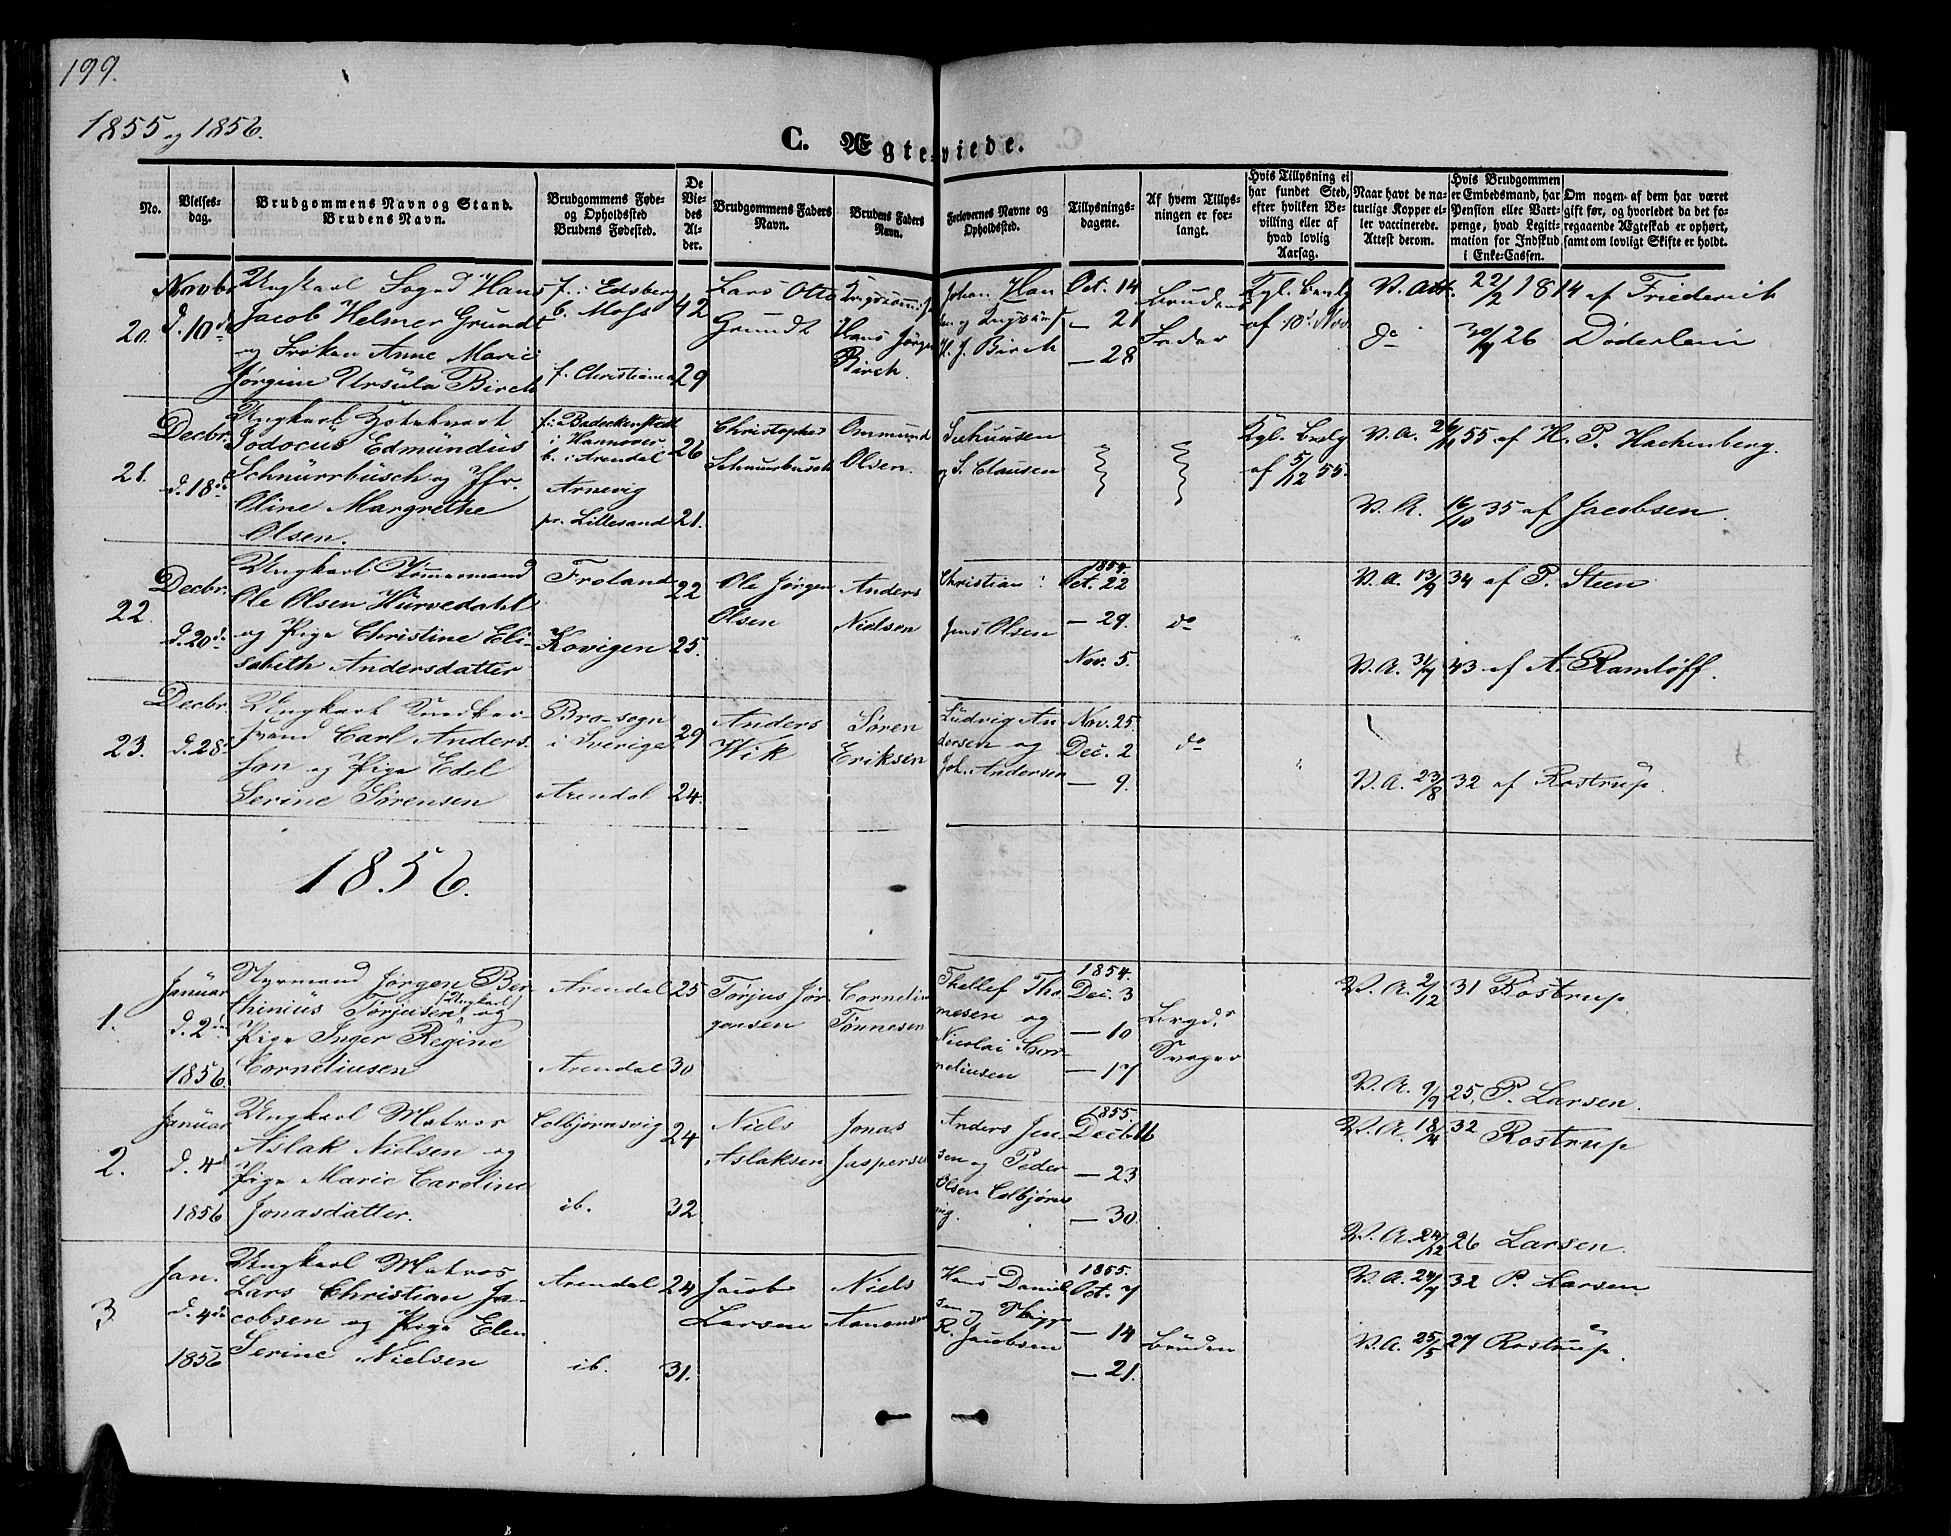 199.
1855 og 1856.
C. Ægteviede.
No.
Vielsesdag.
Brudgommens Navn og Stand.
Brudens Navn.
Brudgommens Føde-
og Opholdssted
Brudens Fødested.
De
Vie-
des
Al-
der.
Brudgommens Faders
Navn.
Brudens Faders
Navn.
Forlovernes Navne og
Opholdssted.
Tillysnings-
dagene.
Af hvem Tillys-
ningen er for-
langt.
Hvis Tillysning ei
har fundet Sted,
efter hvilken Be-
villing eller af
hvad lovlig
Aarsag.
Naar havt de na-
turlige Kopper el-
ler vaccinerede.
Attest derom.
Hvis Brudgommen
er Embedsmand, har
Pension eller Vart-
penge, hvad Legiti-
mation for Indskud
i Enke-Cassen.
Om nogen af dem har været
gift før, og hvorledet da det fo-
regaaende Ægteskab er ophørt,
samt om lovligt Skifte er holdt.
20.
Novbr
d. 10de
Ungkarl Hans
Jacob Helmer Grundt
og Frøken Anne Marie
Jørgine Ursula Birch
f. i Edsberg
b. Moss
f. Christiania
42
29
Lars Otto
Grundt
Hans Jørgen
Birch.
Johan Han
sen og
H. J. Birch
Oct. 14
— 21
— 28
Brudens
Fader
Kgl. Bevlg
af 10' Nov.
V. Att. 22/2 1814 af Friederich
do 30/9 26 Døderlein
21.
Decbr.
d. 18de
Ungkarl
Jodocus Edmundus
Schnurrbusch og Jfr.
Oline Margrethe
Olsen.
f. i Badeckenstedt
i Hannover
b. i Arendal
Arnevig
pr. Lillesand
26
21.
Christopher
Schnurrbusch
Ommund
Olsen.
Seehuusen
og S. Clausen
Kgl. Bevlg
af 5/12 55.
V. A. 26/11 55 af H. P. Hachenberg.
V. A. 16/10 35 af Jacobsen.
22.
Decbr.
d. 20de
Ungkarl Tømmermand
Ole Olsen Hurvedahl
og Pige Christine Eli-
sabeth Andersdatter
Froland
Kovigen
22
25.
Ole Jørgen
Olsen
Anders
Nielsen
Christian
Jens Olsen
1854.
Oct. 22
— 29.
Nov. 5.
do
V. A. 13/9 34 af P. Steen
V. A. 31/7 43 af A. Ramløff.
23.
Decbr.
d. 28de
Ungkarl Snedker-
svend Carl Anders-
son og Pige Edel
Serine Sørensen
Bro-sogn
i Sverige
Arendal
29
24.
Anders
Wik
Søren
Eriksen
Ludvig An
dersen og
Joh. Andersen
Nov. 25.
Dec. 2
— 9.
do
V. A. 23/8 32 af Rostrup.
1856.
1.
Januar
d. 2den
1856
Styrmand Jørgen Ber-
thinius Torjusen (Ungkarl) og
Pige Inger Regine
Corneliusen
Arendal
Arendal
25
30
Torjus Jør
gensen
Cornelius
Tønnesen
Thellef Tho
mesen og
Nicolai Cor-
neliusen
1854.
Dec. 3
— 10
— 17
Brgd.s
Svoger
V. A. 2/12 31 Rostrup.
V. A. 9/9 25, P. Larsen.
2.
Januar
d. 4de
1856
Ungkarl Matros
Aslak Nielsen og
Pige Marie Caroline
Jonasdatter.
Colbjørnsvig
ib.
24
32
Niels
Aslaksen
Jonas
Jaspersen
Anders Jen
sen og Peder
Olsen Colbjørns
vig.
1855.
Decbr 16
— 23
— 30.
V. A. 18/4 32 Rostrup
V. A. 24/12 26 Larsen.
3
Jan.
d. 4de
1856
Ungkarl Matros
Lars Christian Ja-
cobsen og Pige Elen
Serine Nielsen
Arendal
ib.
24
31.
Jacob
Larsen
Niels
Aanonsen
Hans Daniel
sen og
R. Jacobsen
1855.
Oct. 7
— 14
— 21.
Bruden
V. A. 24/7 32 P. Larsen
V. A. 25/5 27 Rostrup.